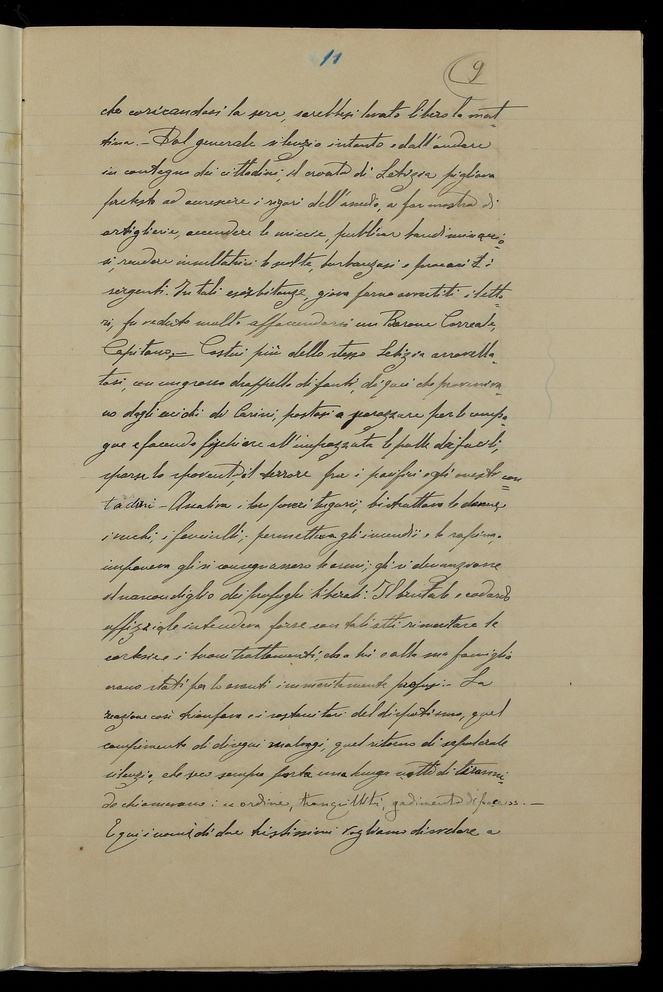 11
9
che coricandosi la sera, sarebbesi levato libero la mat-
tina. - Dal generale silenzio intanto e dall'andare
in contegno dei cittadini, il croata di Letizia pigliava
pretesto ad accrescere i rigori dell'assedio, a far mostra di
artiglierie, accendere le miccie, pubblicar bandi minaccio-
si, rendere insultatrici le scolte, burbanzosi e procaci i
sergenti. In tali esorbitanze, giova farne avvertiti i letto-
ri, fu veduto molto affaccendarsi un Barone Correale,
Capitano. - Costui più dello stesso Letizia arrovella-
tosi, con un grosso drappello di fanti, di quei che proveniva-
no dagli eccidi di Carini, postosi a scorazzare per le campa-
gne e facendo fischiare all'impazzata le palle dei fucili,
sparse lo spavento il terrore fra i pacifici ed onesti con-
tadini - i loro tuguri, bistrattava le donne
i vecchi, i fanciulli; permetteva gli incendii e le rapine.
imponeva gli si consegnassero le armi; gli si denunziasse
il nascondiglio dei profughi liberali. Il brutale e codardo
uffiziale intendeva forse con tali atti rimeritare le
cortesie e i buoni trattamenti, che a lui e alla sua famiglia
erano stati per lo avanti immeritamente prodigati. La
reazione così trionfava e i sostenitori del dispotismo, quel
compimento di disegni malvagi, quel ritorno di sepolcrale
silenzio, che seco sempre porta una lunga notte di tiranni-
de chiamavano: ordine, tranquillità, godimento di pace. -
E qui i nomi di due tristissimi vogliamo disvelare a